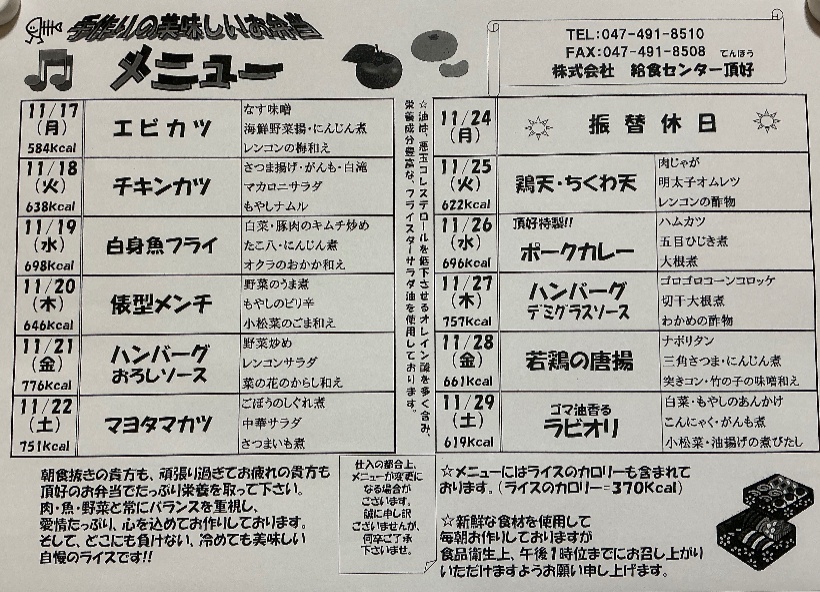 手作りの美味しいお弁当
メニュー
TEL:047-491-8510
FAX:047-491-8508
てんほう
株式会社 給食センター頂好
11/17
(月)
584kcal
エビカツ
なす味噌
海鮮野菜揚・にんじん煮
レンコンの梅和え
11/18
(火)
638kcal
チキンカツ
さつま揚げ・がんも・白滝
マカロニサラダ
もやしナムル
11/19
(水)
698kcal
白身魚フライ
白菜・豚肉のキムチ炒め
たこ八・にんじん煮
オクラのおかか和え
11/20
(木)
646kcal
俵型メンチ
野菜のうま煮
もやしのピリ辛
小松菜のごま和え
11/21
(金)
776kcal
ハンバーグ
おろしソース
野菜炒め
レンコンサラダ
菜の花のからし和え
11/22
(土)
751kcal
マヨタマカツ
ごぼうのしぐれ煮
中華サラダ
さつまいも煮
☆油は、悪玉コレステロールを低下させるオレイン酸を多く含み、
栄養成分豊富な、フライスターサラダ油を使用しております。
11/24
(月)
振替休日
11/25
(火)
622kcal
鶏天・ちくわ天
肉じゃが
明太子オムレツ
レンコンの酢物
11/26
(水)
696kcal
頂好特製!!
ポークカレー
ハムカツ
五目ひじき煮
大根煮
11/27
(木)
757kcal
ハンバーグ
デミグラスソース
ゴロゴロコーンコロッケ
切干大根煮
わかめの酢物
11/28
(金)
661kcal
若鶏の唐揚
ナポリタン
三角さつま・にんじん煮
突きコン・竹の子の味噌和え
11/29
(土)
619kcal
ゴマ油香る
ラビオリ
白菜・もやしのあんかけ
こんにゃく・がんも煮
小松菜・油揚げの煮びたし
朝食抜きの貴方も、頑張り過ぎてお疲れの貴方も
頂好のお弁当でたっぷり栄養を取って下さい。
肉・魚・野菜と常にバランスを重視し、
愛情たっぷり、心を込めてお作りしております。
そして、どこにも負けない、冷めても美味しい
自慢のライスです!!
仕入の都合上、
メニューが変更に
なる場合が
ございます。
誠に申し訳
ございませんが、
何卒ご了承
下さいませ。
☆メニューにはライスのカロリーも含まれて
おります。(ライスのカロリー=370Kcal)
☆新鮮な食材を使用して
毎朝お作りしておりますが
食品衛生上、午後1時位までにお召し上がり
いただけますようお願い申し上げます。